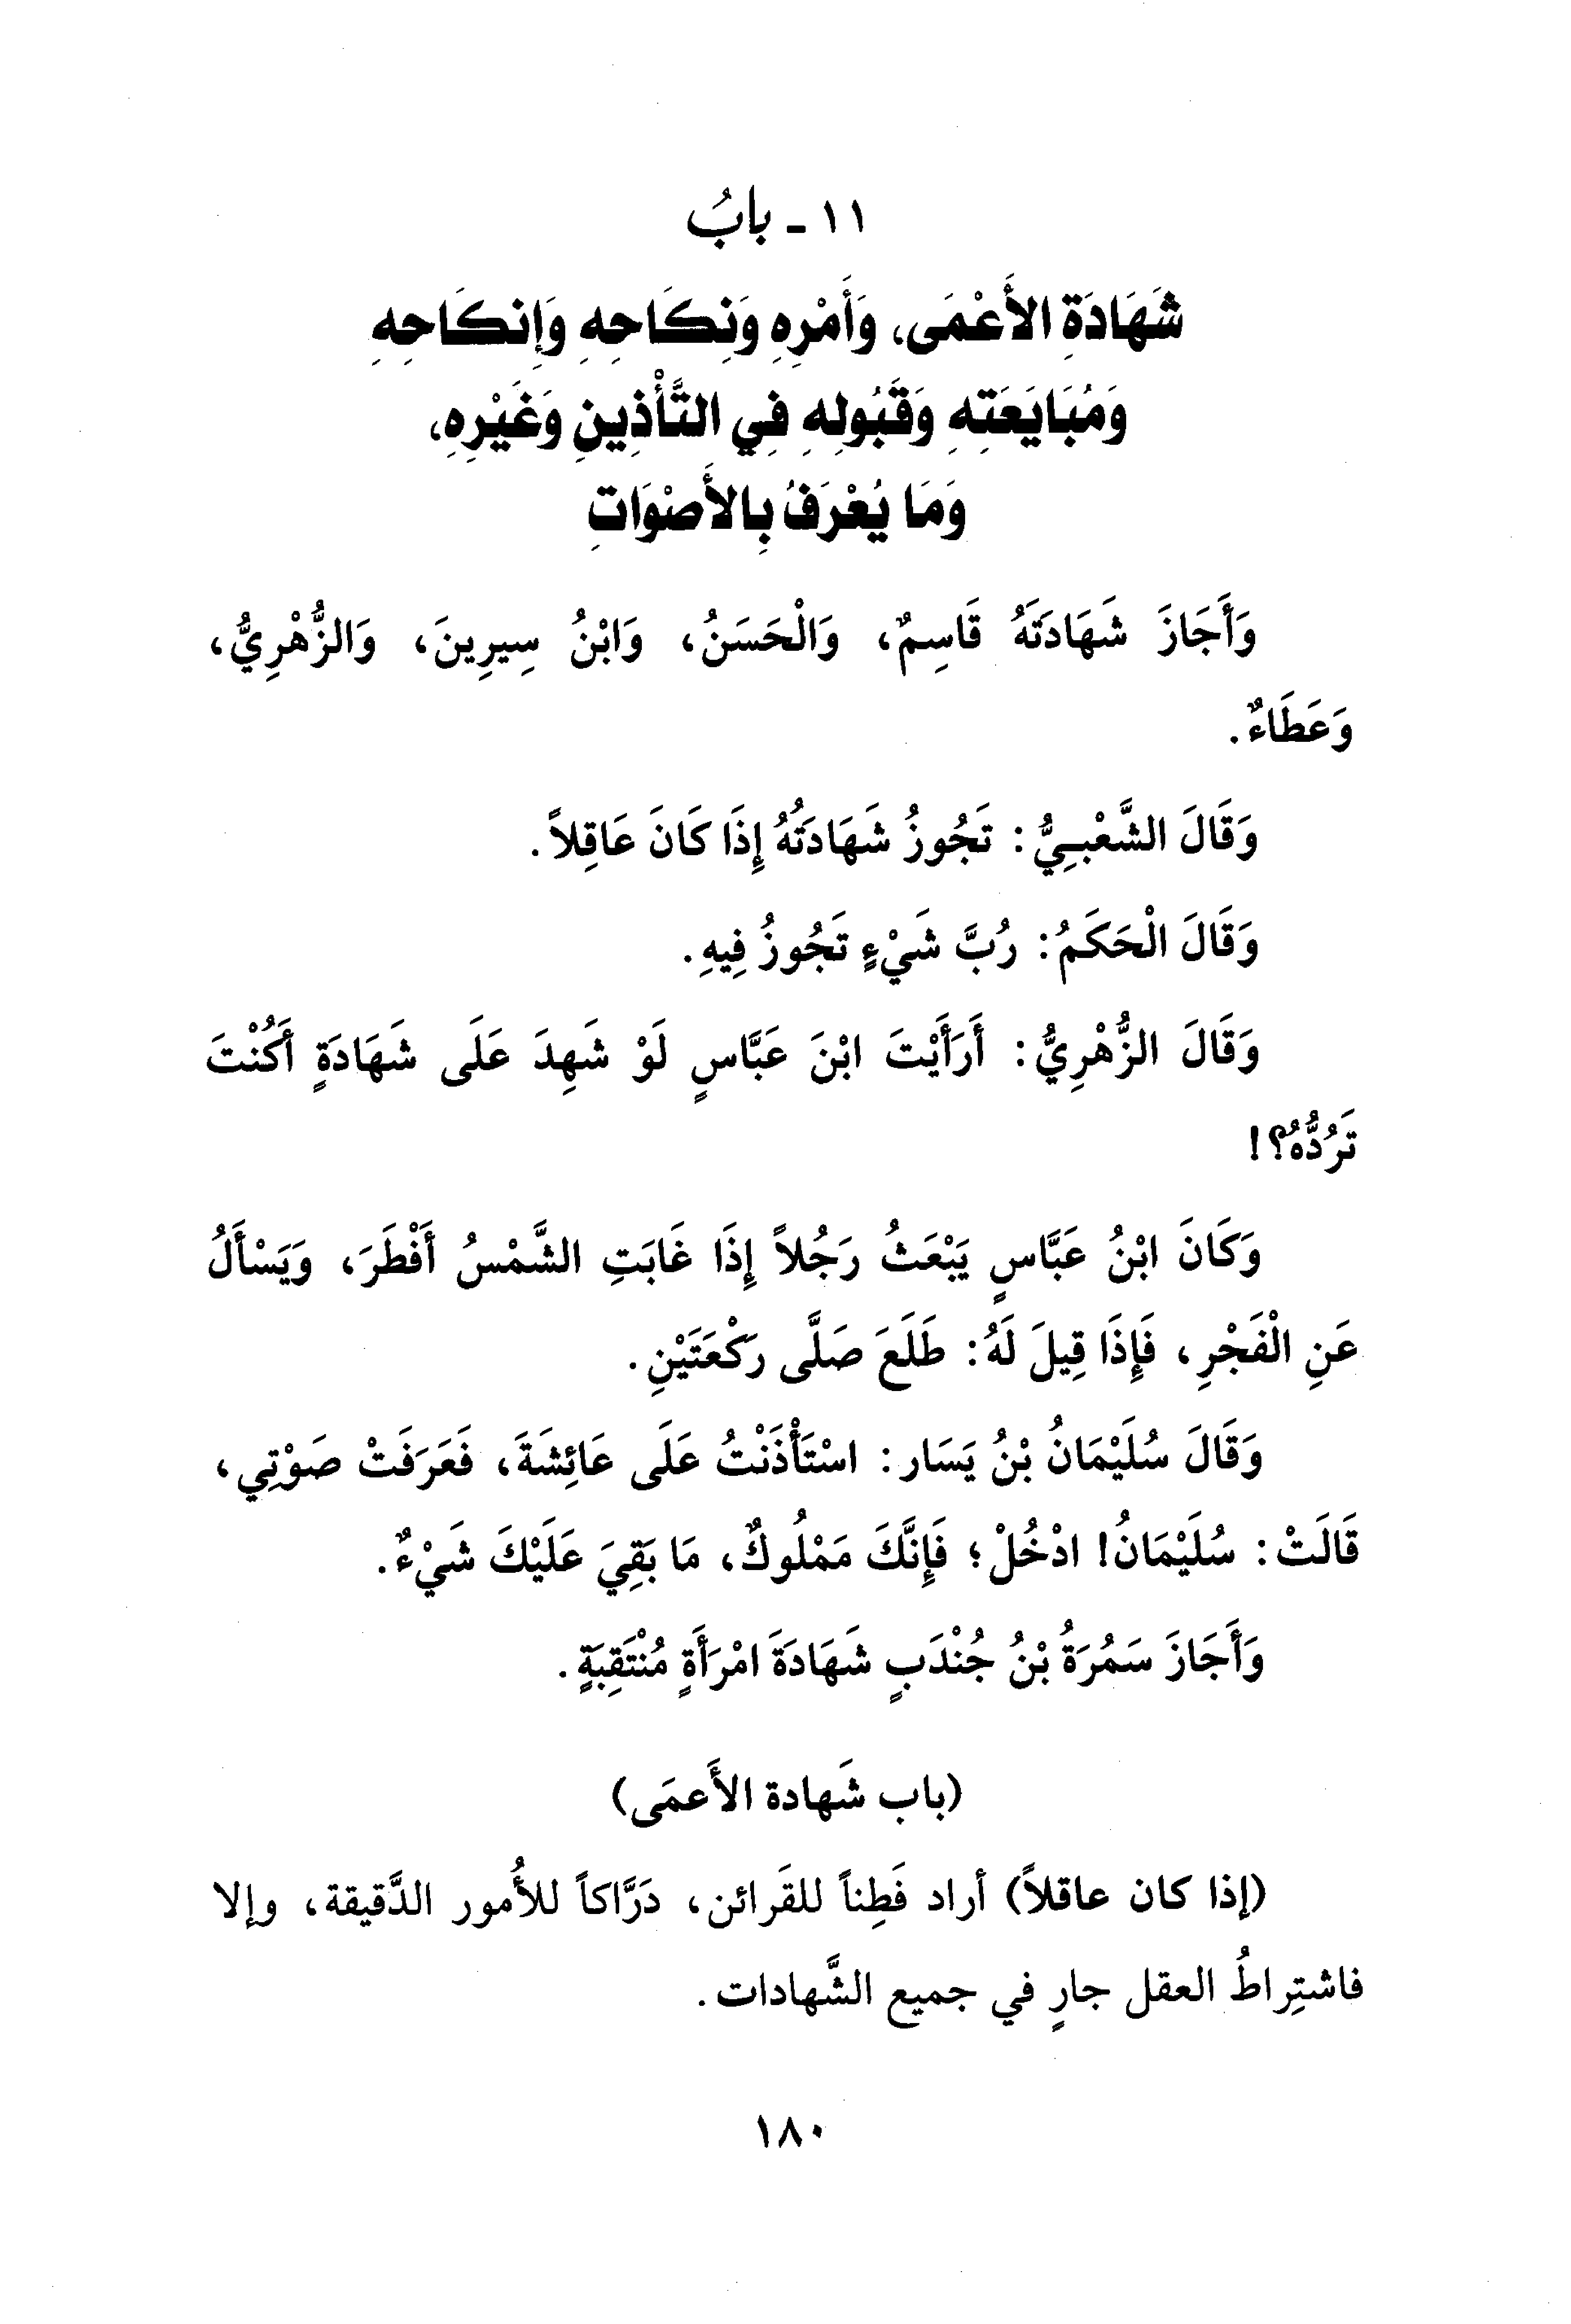 ١١ - بابُ
شَهَادَةِ الأَعْمَى، وَأَمْرِهِ وَنِكَاحِهِ وَإِنكَاحِهِ
وَمُبَايَعَتِهِ وَقَبُولِهِ فِي التَّأْذِينِ وَغَيْرِهِ،
وَمَا يُعْرَفُ بِالأَصْوَاتِ
وَأَجَازَ شَهَادَتَهُ قَاسِمٌ، وَالْحَسَنُ، وَابْنُ سِيرِينَ، وَالزُّهْرِيُّ،
وَعَطَاءٌ.
وَقَالَ الشَّعْبِيُّ: تَجُوزُ شَهَادَتُهُ إِذَا كَانَ عَاقِلاً.
وَقَالَ الْحَكَمُ: رُبَّ شَيْءٍ تَجُوزُ فِيهِ.
وَقَالَ الزُّهْرِيُّ: أَرَأَيْتَ ابْنَ عَبَّاسٍ لَوْ شَهِدَ عَلَى شَهَادَةٍ أَكُنْتَ
تَرُدُّهُ؟!
وَكَانَ ابْنُ عَبَّاسٍ يَبْعَثُ رَجُلاً إِذَا غَابَتِ الشَّمْسُ أَفْطَرَ، وَيَسْأَلُ
عَنِ الْفَجْرِ، فَإِذَا قِيلَ لَهُ: طَلَعَ صَلَّى رَكْعَتَيْنِ.
وَقَالَ سُلَيْمَانُ بْنُ يَسَار: اسْتَأْذَنْتُ عَلَى عَائِشَةَ، فَعَرَفَتْ صَوْتِي،
قَالَتْ: سُلَيْمَانُ! ادْخُلْ؛ فَإِنَّكَ مَمْلُوكٌ، مَا بَقِيَ عَلَيْكَ شَيْءٌ.
وَأَجَازَ سَمُرَةُ بْنُ جُنْدَبٍ شَهَادَةَ امْرَأَةٍ مُنْتَقِبَةٍ.
(باب شَهادة الأَعمَى)
(إذا كان عاقلاً) أراد فَطِناً للقَرائن، دَرَّاكاً للأُمور الدَّقيقة، وإلا
فاشتِراطُ العقل جارٍ في جميع الشَّهادات.
١٨٠